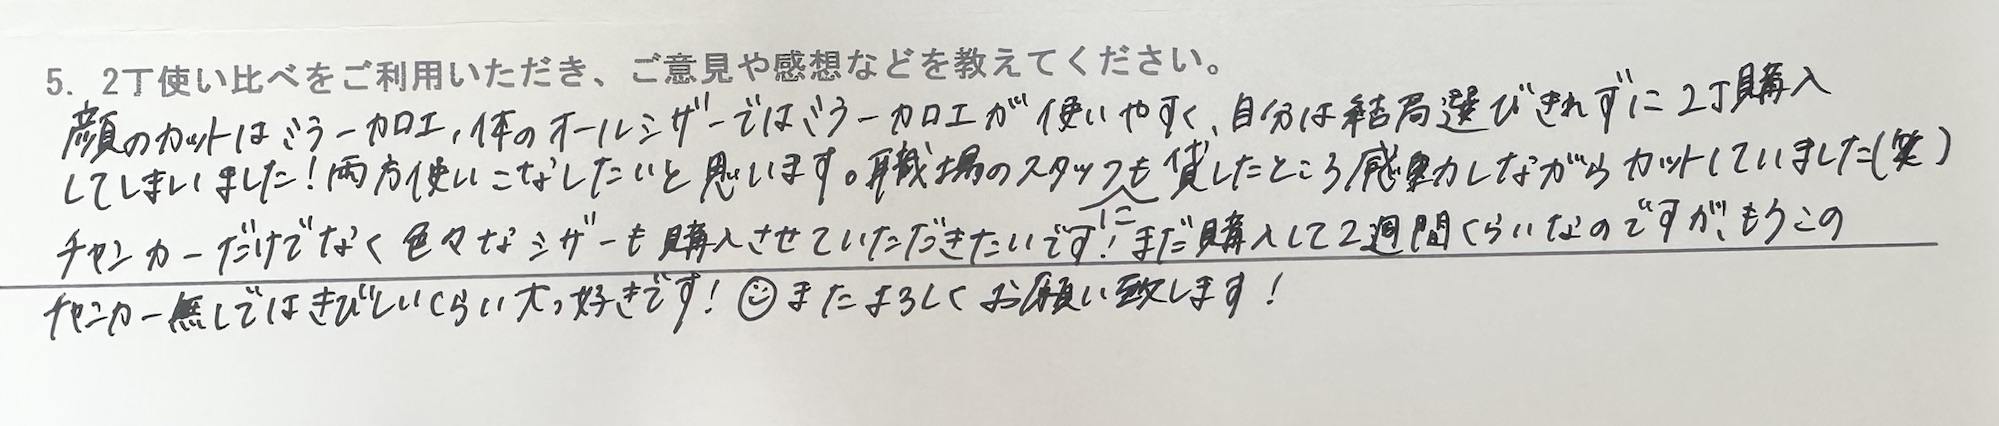 5. 2丁使い比べをご利用いただき、ご意見や感想などを教えてください。
顔のカットはミラー加工、体のオールシザーではミラー加工が使いやすく、自分は結局選びきれずに2丁購入
してしまいました!両方使いこなしたいと思います。職場のスタッフにも貸したところ感動しながらカットしていました(笑)
チャンカーだけでなく色々なシザーも購入させていただきたいです!まだ購入して2週間くらいなのですが、もうこの
チャンカー無しではきびしいくらい大っ好きです!☺またよろしくお願い致します!